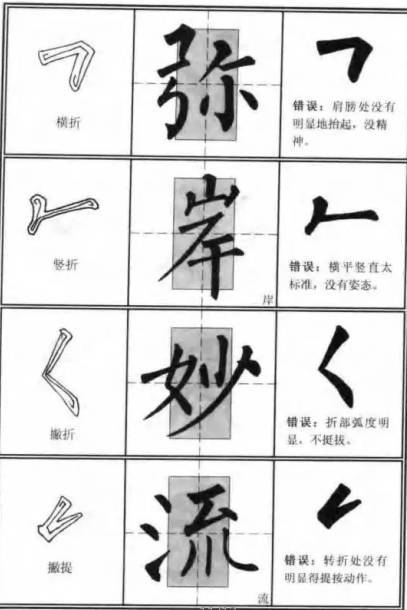 横折
弥
错误：肩膀处没有
明显地抬起，没精
神。
竖折
岸
岸
错误：横平竖直太
标准，没有姿态。
撇折
妙
错误：折部弧度明
显，不挺拔。
撇提
流
流
错误：转折处没有
明显得提按动作。